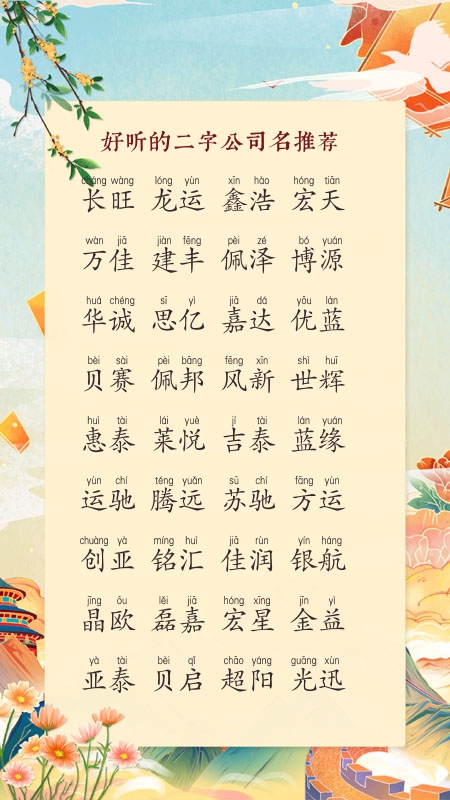 好听的二字公司名推荐
cháng wàng lóng yùn xīn hào hóng tiān
长旺 龙运 鑫浩 宏天
wàn jiā jiàn fēng pèi zé bó yuán
万佳 建丰 佩泽 博源
huá chéng sī yì jiā dá yōu lán
华诚 思亿 嘉达 优蓝
bèi sài pèi bāng fēng xīn shì huī
贝赛 佩邦 风新 世辉
huì tài lái yuè jí tài lán yuán
惠泰 莱悦 吉泰 蓝缘
yùn chí téng yuǎn sū chí fāng yùn
运驰 腾远 苏驰 方运
chuàng yà míng huì jiā rùn yín háng
创亚 铭汇 佳润 银航
jīng ōu lěi jiā hóng xīng jīn yì
晶欧 磊嘉 宏星 金益
yà tài bèi qǐ chāo yáng guāng xùn
亚泰 贝启 超阳 光迅